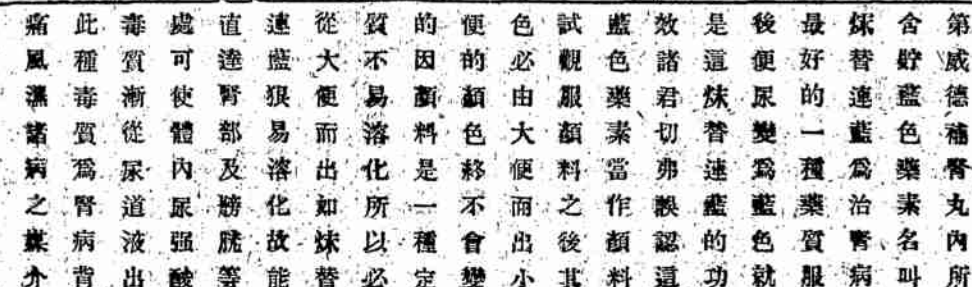 第威德補腎丸內所
含貯藍色藥素名叫
替連藍爲治腎病
最好的一種藥質服
後便尿變爲藍色就
是這替連藍的功
效諸君切弗誤認這
藍色藥素當作顏料
試觀服顏料之後其
色必由大便而出小
便的顏色終不會變
的因顏料是一種定
質不易溶化所以必
從大便而出如替
連藍狠易溶化故能
值達腎部及膀胱等
處可使體內尿强酸
毒質漸從尿道液出
此種毒質爲腎病背
痛風濕諸病之媒介